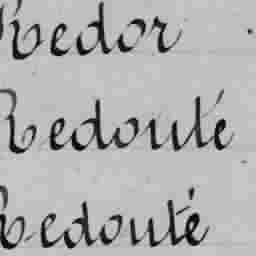 Redor
Redouté
Redouté